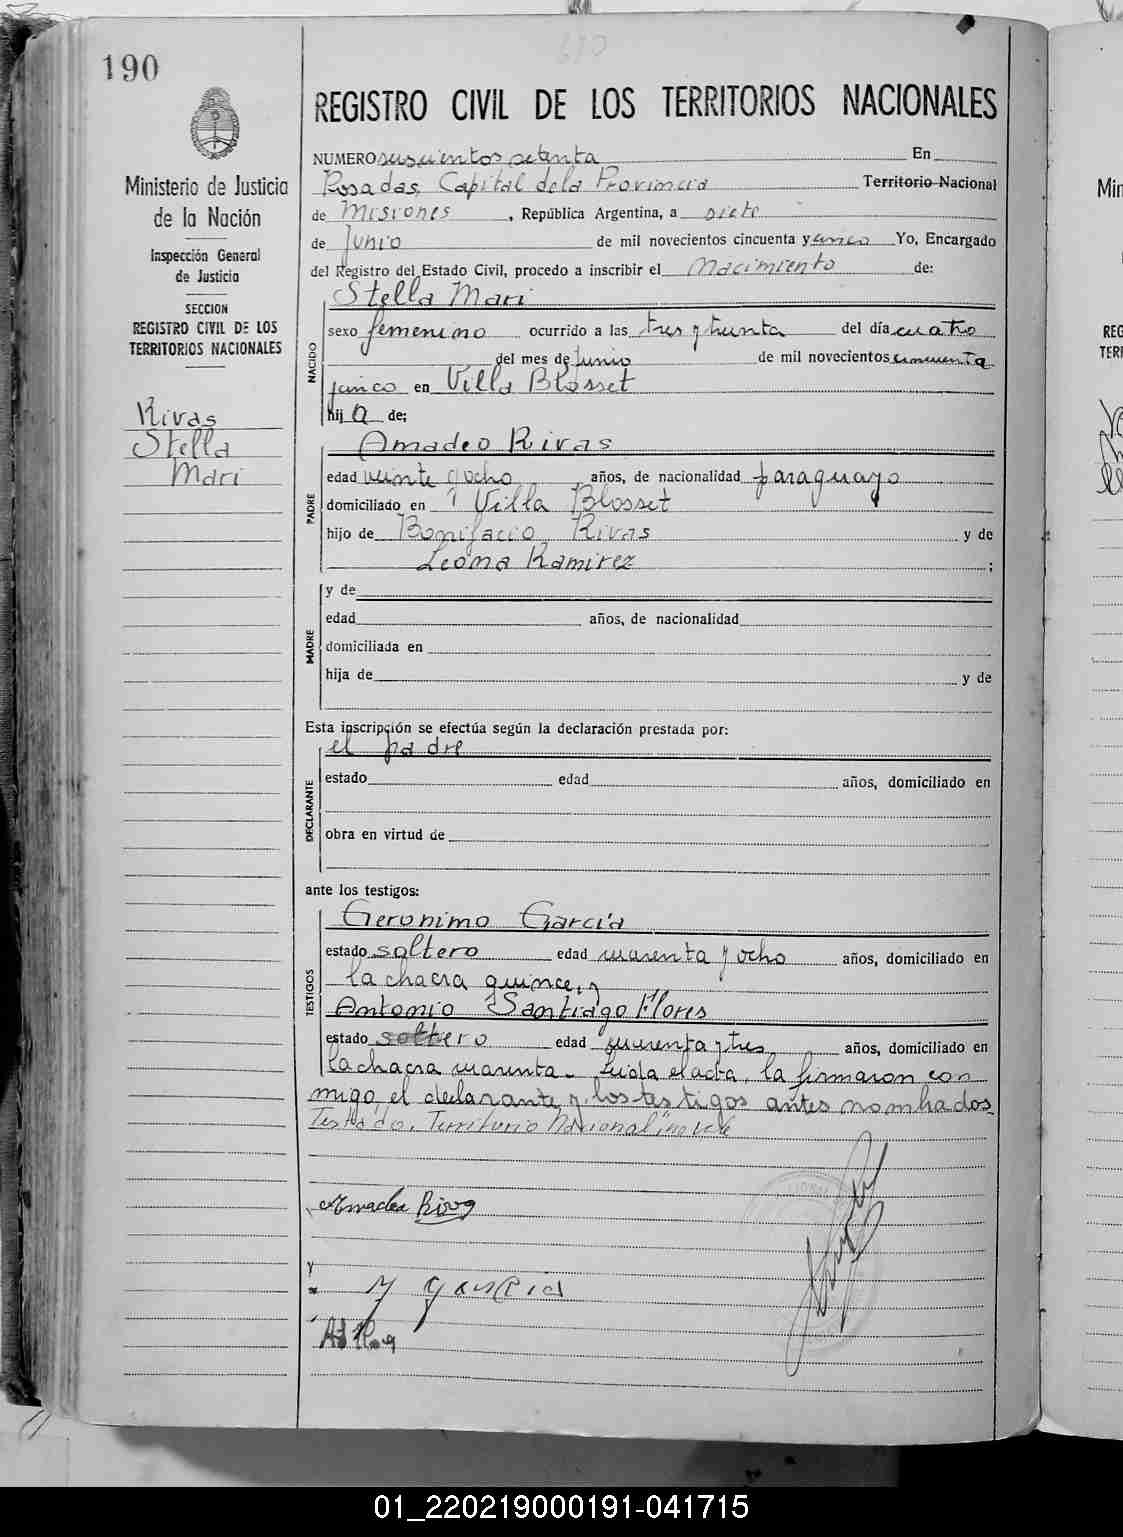 190
REGISTRO CIVIL DE LOS TERRITORIOS NACIONALES
Ministerio de Justicia
de la Nación
Inspección General
de Justicia
SECCION
REGISTRO CIVIL DE LOS
TERRITORIOS NACIONALES
Rivas
Stella
Mari
NUMERO seiscientos setenta En
Posadas, Capital de la Provincia Territorio Nacional
de Misiones, República Argentina, a siete
de Junio de mil novecientos cincuenta y cinco Yo, Encargado
del Registro del Estado Civil, procedo a inscribir el Nacimiento de:
NACIDO
Stella Mari
sexo femenino ocurrido a las tres y treinta del día cuatro
del mes de Junio de mil novecientos cincuenta
y cinco en Villa Blosset
hija de;
PADRE
Amadeo Rivas
edad veinte y ocho años, de nacionalidad paraguayo
domiciliado en Villa Blosset
hijo de Bonifacio Rivas y de
Leona Ramirez ;
MADRE
y de
edad años, de nacionalidad
domiciliada en
hija de y de
Esta inscripción se efectúa según la declaración prestada por:
DECLARANTE
el padre
estado edad años, domiciliado en
obra en virtud de
ante los testigos:
TESTIGOS
Geronimo Garcia
estado soltero edad cuarenta y ocho años, domiciliado en
la chacra quince, y
Antonio Santiago Flores
estado soltero edad cuarenta y tres años, domiciliado en
la chacra cuarenta. Leida el acta, la firmaron con
migo, el declarante y los testigos antes nombrados
Testado, Territorio Nacional: no vale
Amadeo Rivas
y garcia
01_220219000191-041715